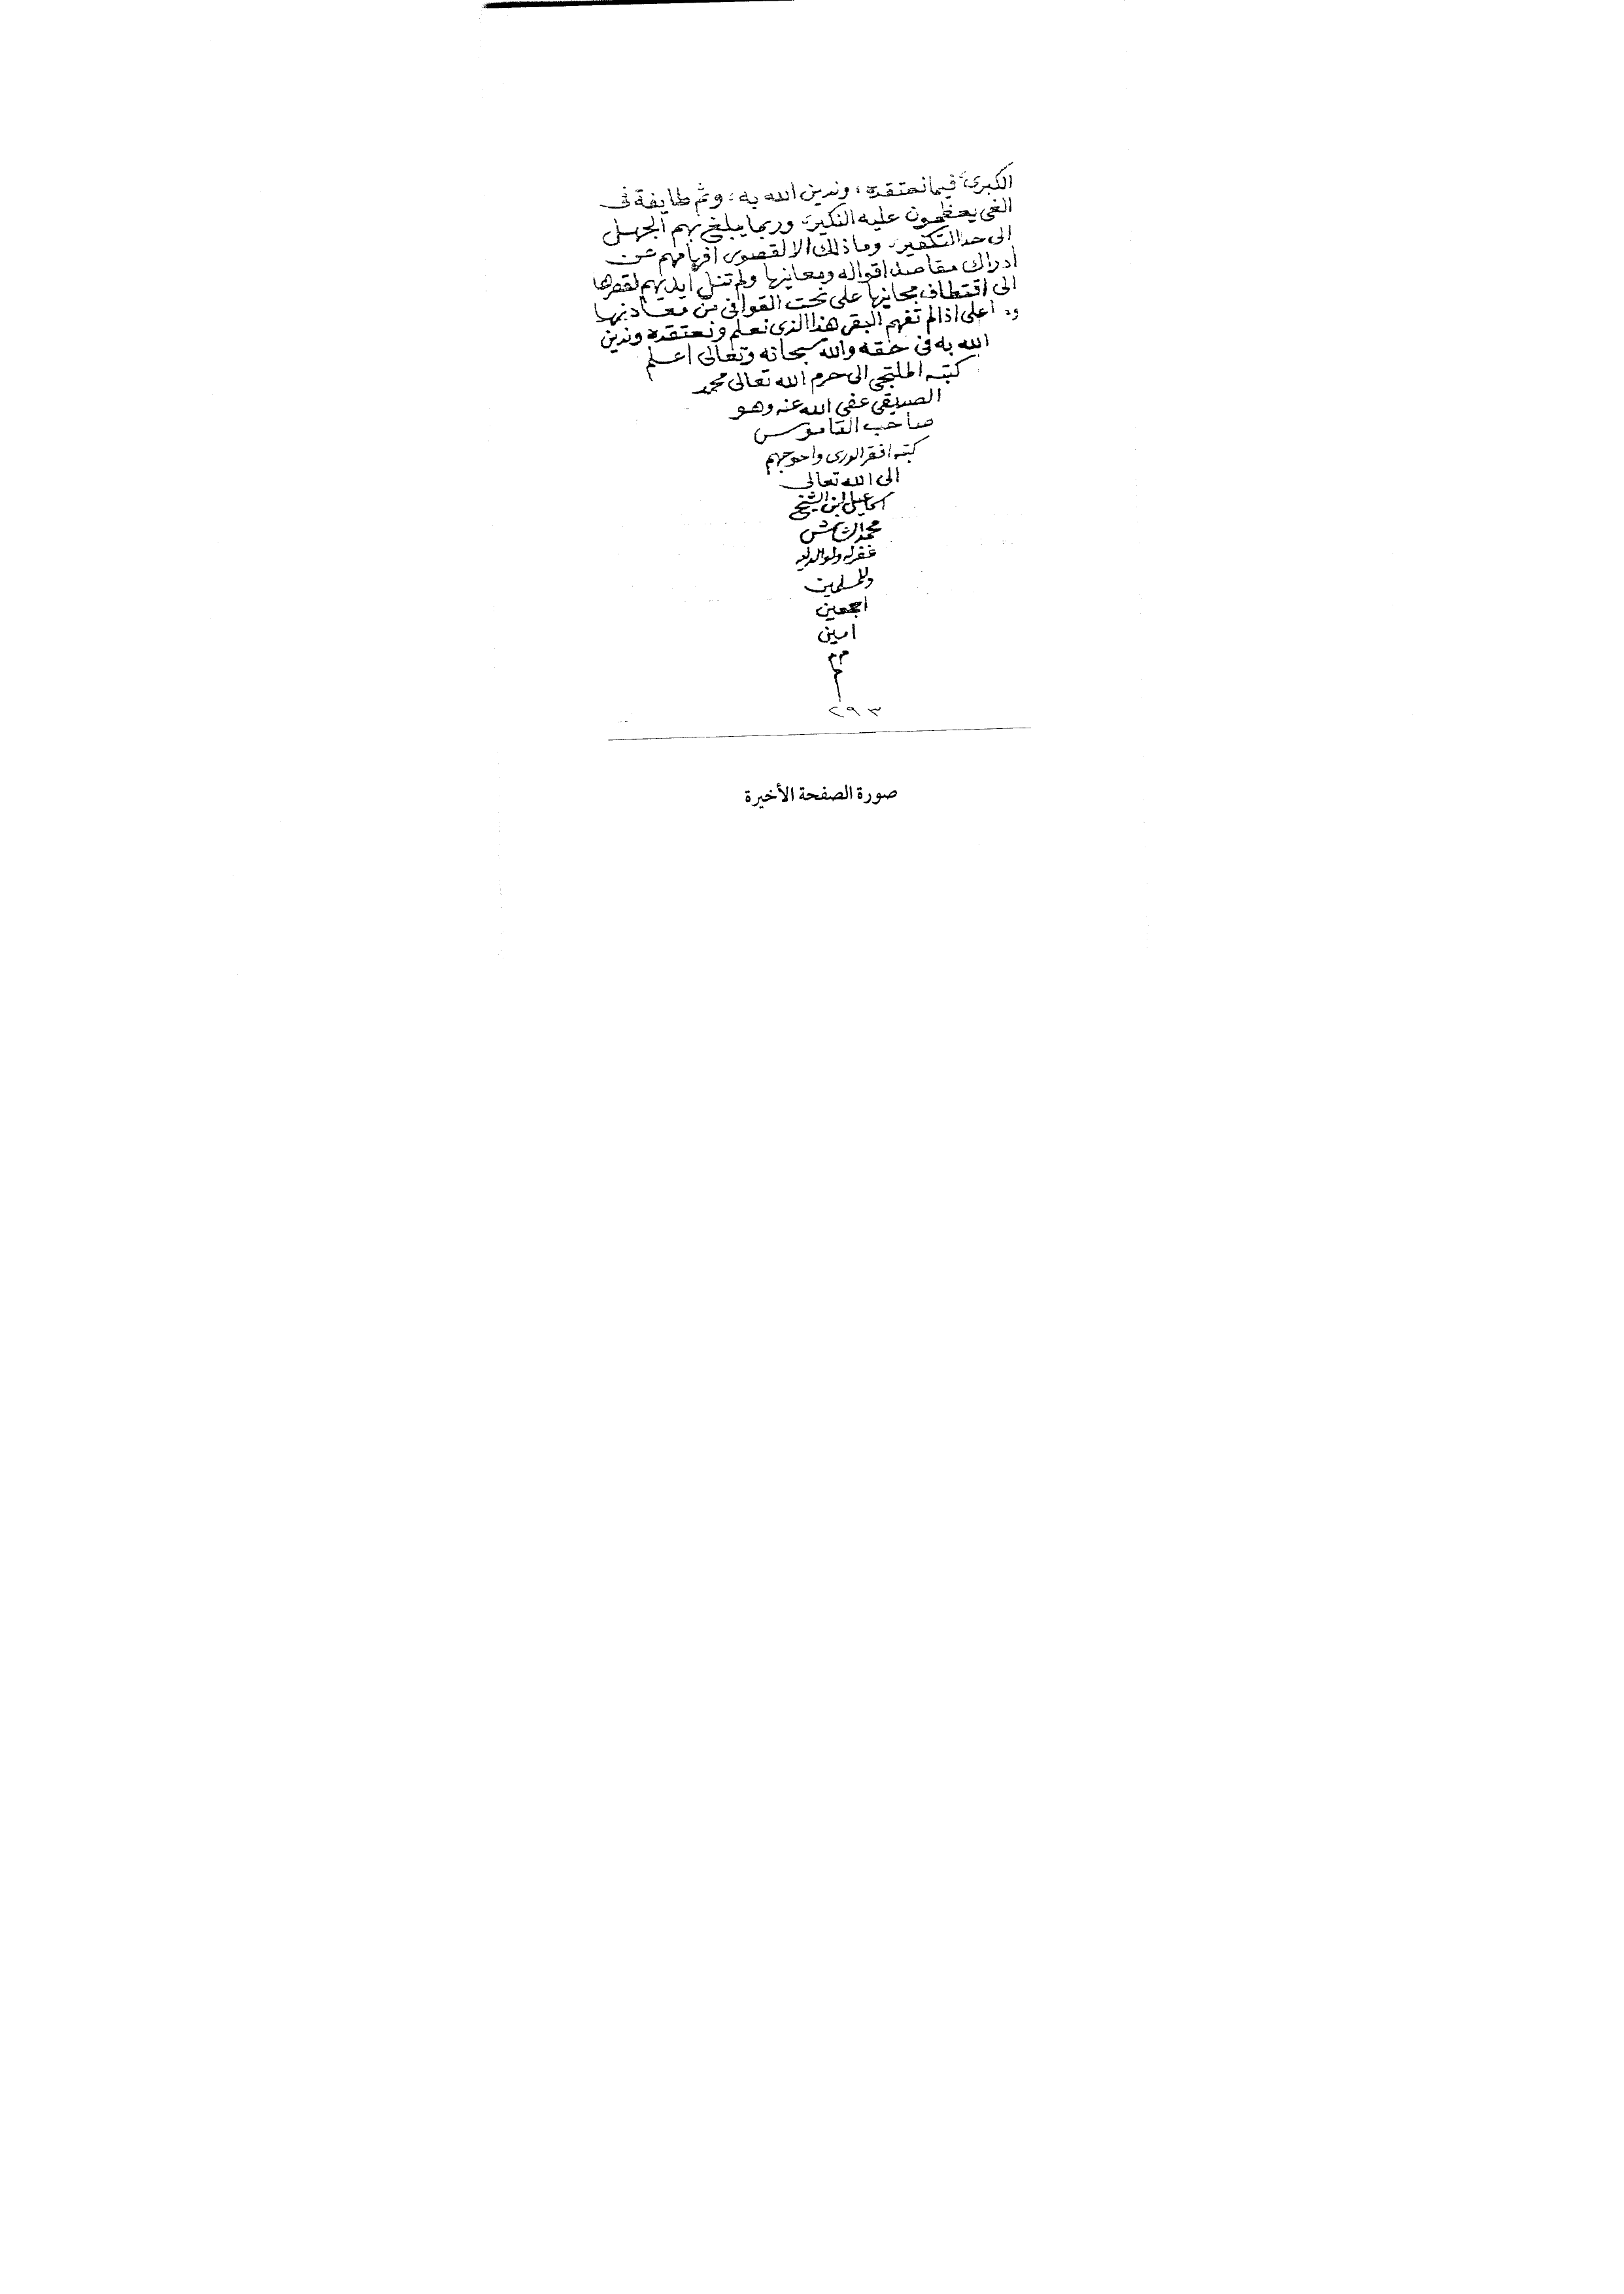 الكبرى فيما نعتقده، وندين الله به، وثم طايفة فى
الغى يعظمون عليه النكير، وربما يبلغ بهم الجهل
الى حد التكفير، وما ذلك الا لقصور افهامهم عن
ادراك مقاصد اقواله ومعانيها ولم تنل ايديهم لقصرها
الى اقتطاف مجانيها على نحت القوافى من معادنها
اعلى اذا لم تفهم البقر هذا الذى نعلم ونعتقده وندين
الله به فى حقه والله سبحانه وتعالى اعلم
كتبه الملتجى الى حرم الله تعالى محمد
الصديقى عفى الله عنه وهو
صاحب القاموس
كتبه افقر الورى واحوجهم
الى الله تعالى
اسماعيل ابن الشيخ
محمد
غفر له ولوالديه
وللمسلمين
اجمعين
امين
٢٩٣
صورة الصفحة الأخيرة